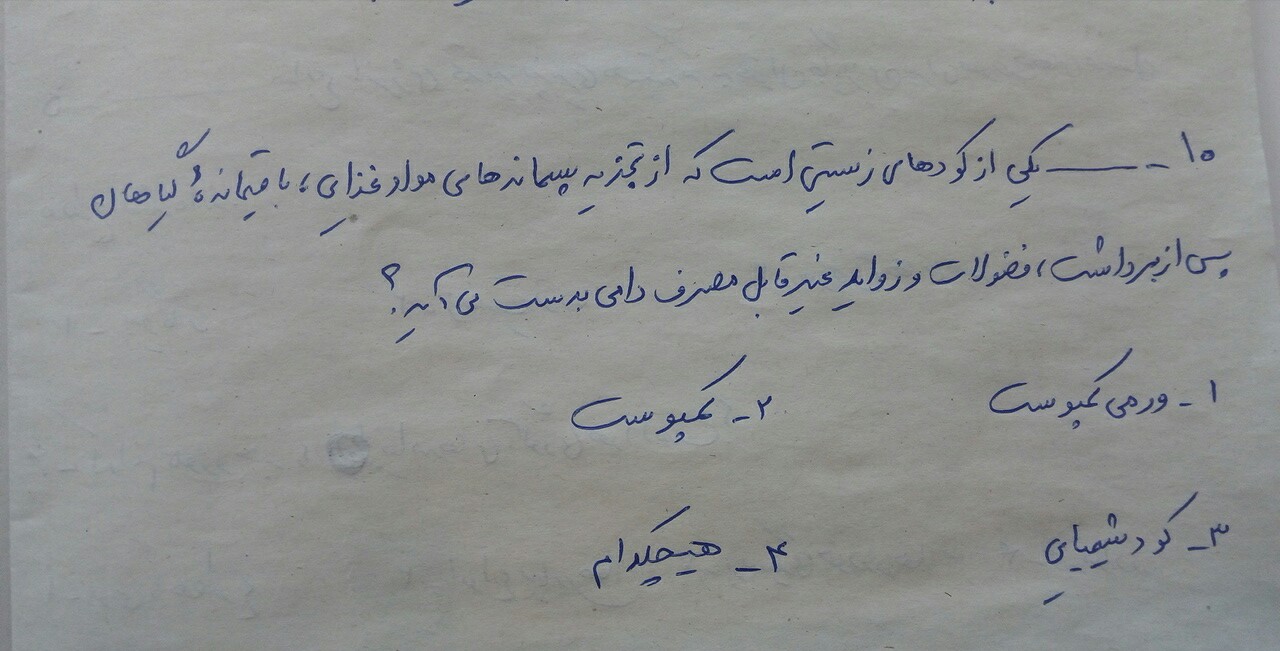 ۱۰- ــــــ یکی از کودهای زیستی است که از تجزیه پسماندهای مواد غذایی، باقیمانده گیاهان
پس از برداشت، فضولات و زواید غیر قابل مصرف دامی بدست می آید؟
۱- ورمی کمپوست
۲- کمپوست
۳- کود شیمیایی
۴- هیچکدام